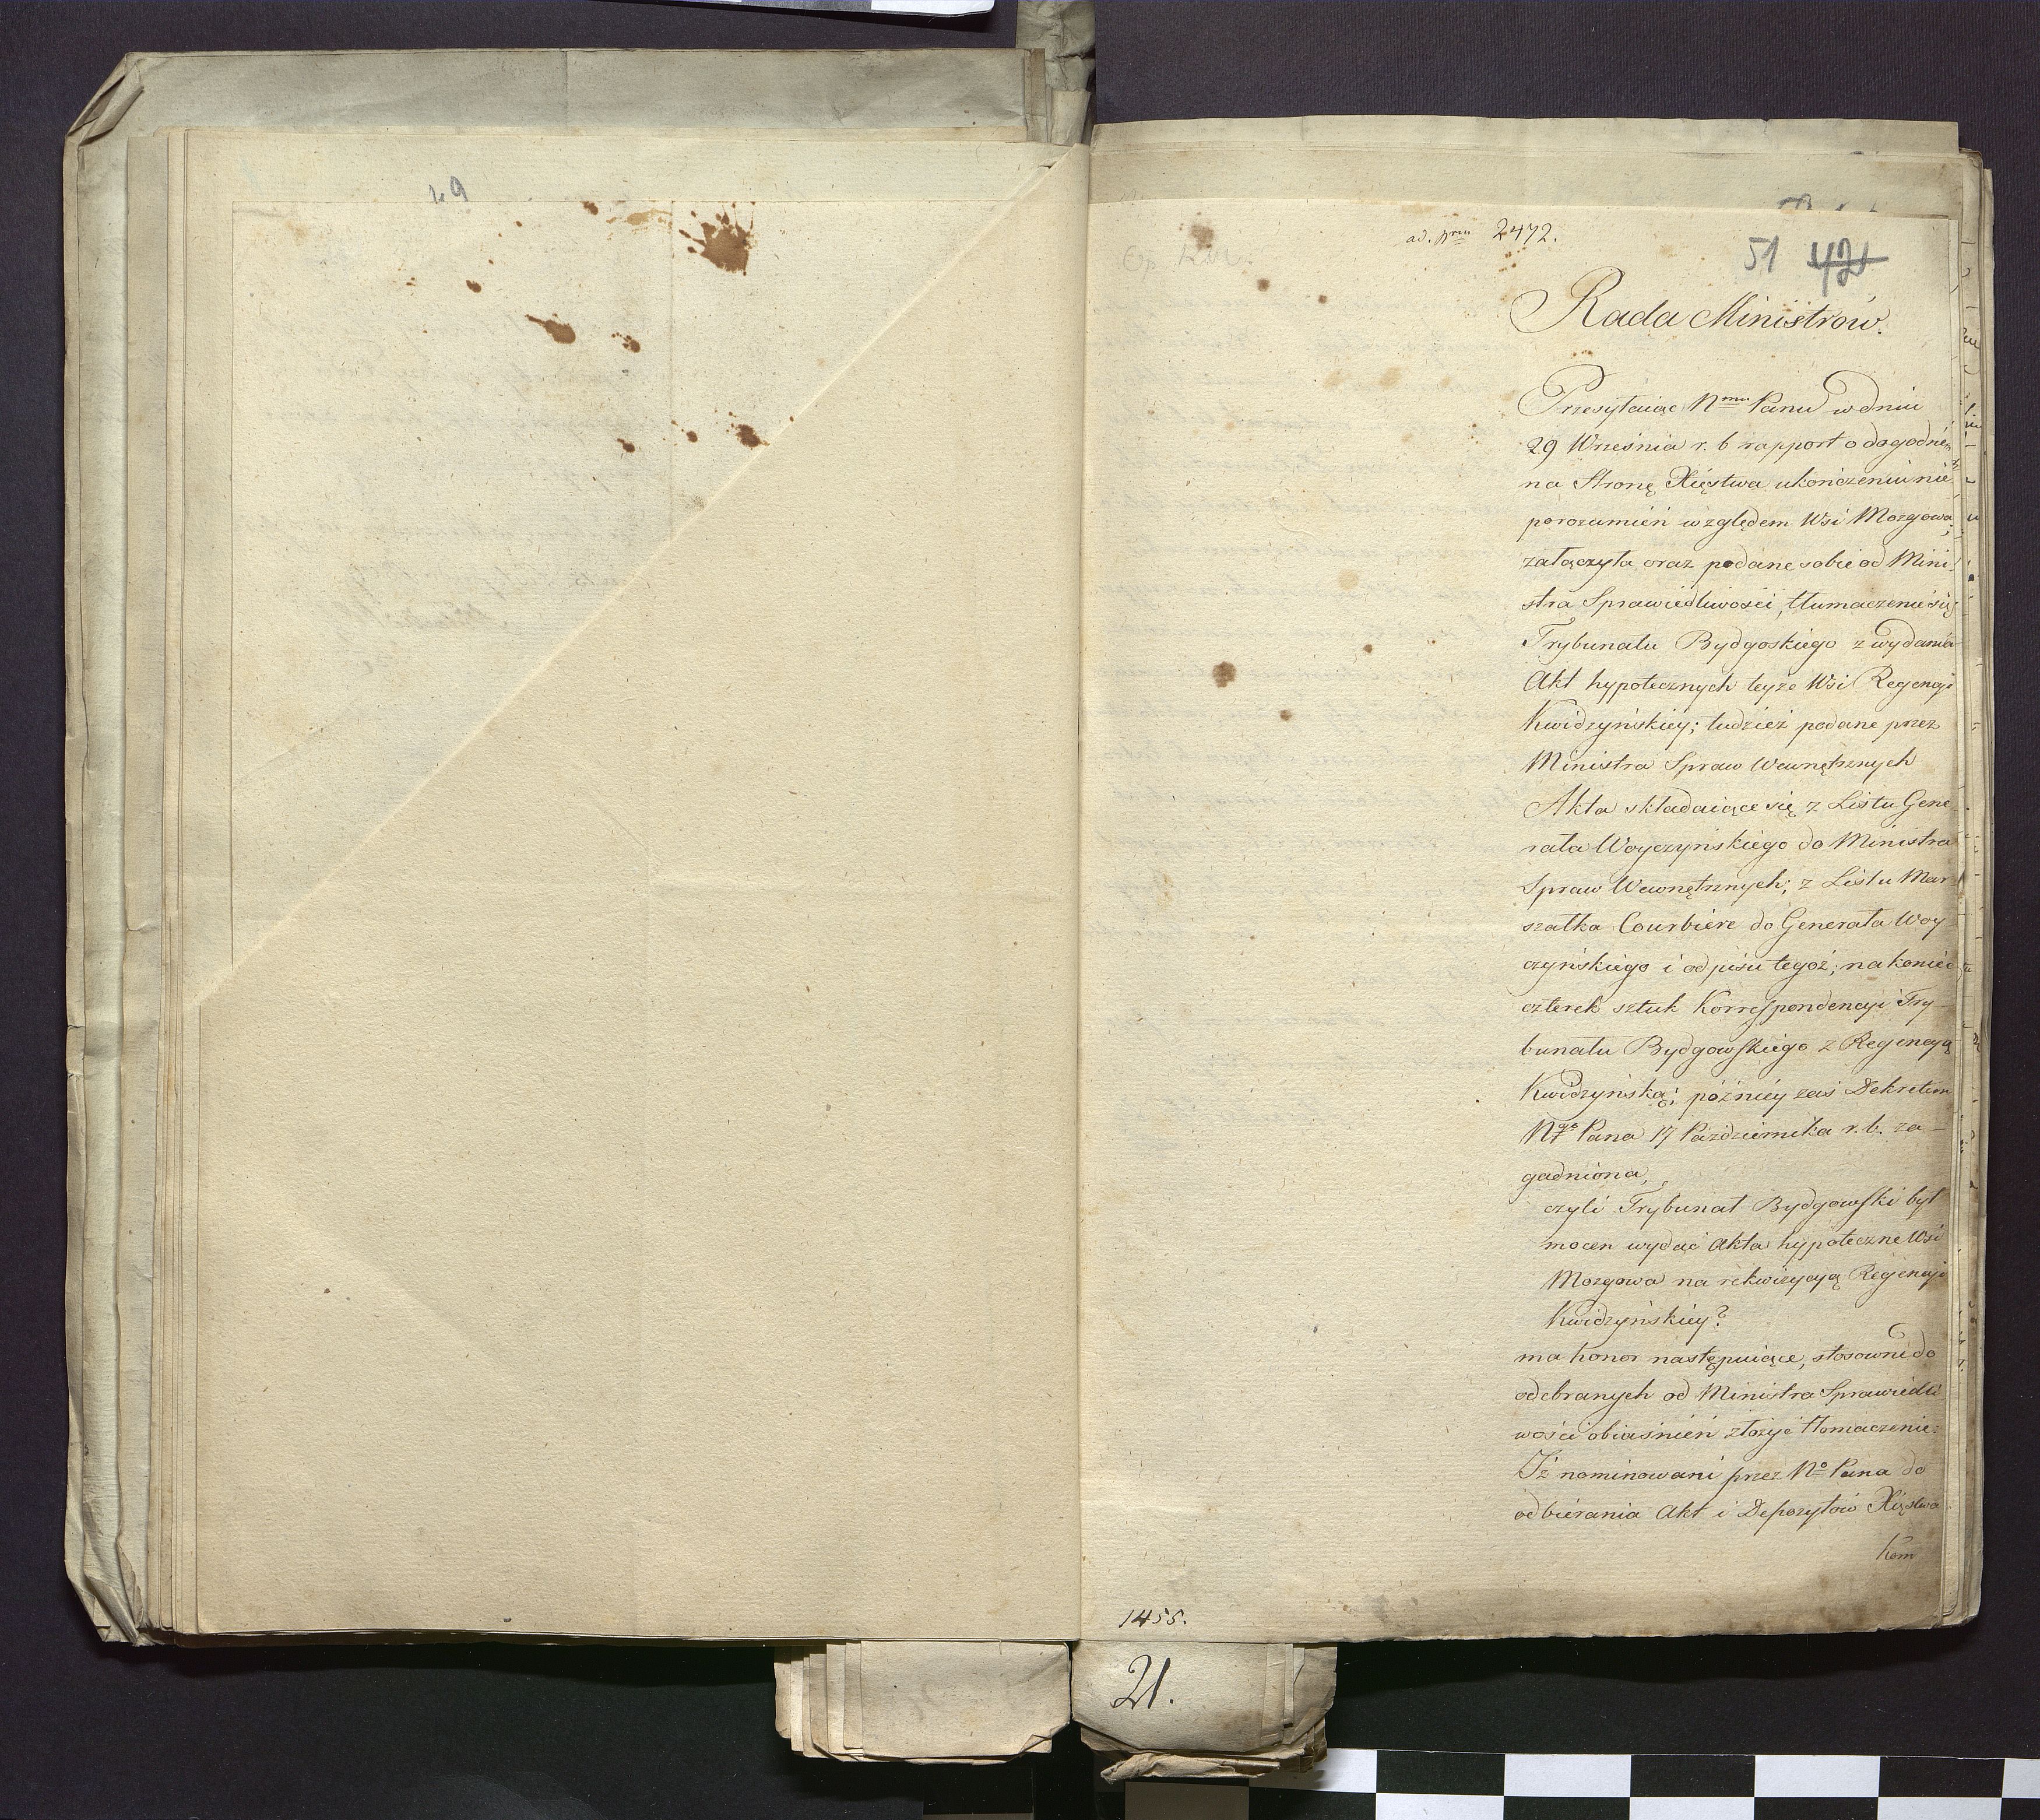 49
ad. Nrm 2472.
51 42
Rada Ministrów.
Przesyłaiąc Nmu Panu w dniu
29 Września r. b rapport o dogodném
na Stronę Xięstwa ukończeniu nie
porozumień względem Wsi Mozgowa,
załączyła oraz podane sobie od Mini-
stra Sprawiedliwości, tłumaczenie się
Trybunału Bydgoskiego z wydania
Akt hypotecznych teyże Wsi Regencyi
Kwidzyńskiey; tudzież podane przez
Ministra Spraw Wewnętrznych
Akta składaiące się z Listu Gene
rała Woyczyńskiego do Ministra
Spraw Wewnętrznych; z Listu Mar-
szałka Courbiere do Generała Woy-
czyńskiego i odpisu tegoż; nakoniec
czterech sztuk Korrespondencyi Try-
bunału Bydgowskiego z Regencyą
Kwidzyńską; poźniéy zaś Dekretem
Ngo Pana 17 Października r. b. za-
gadniona,
czyli Trybunał Bydgowski był
mocen wydać Akta hypoteczne Wsi
Mozgowa na rekwizycyą Regencyi
Kwidzyńskiey?
ma honor następuiące, stosownie do
odebranych od Ministra Sprawiedli
wości obiaśnień złożyć tłomaczenie:
Iż nominowani przez No Pana do
odbiérania Akt i Depozytów Xięstwa
Kom
1455.
21.